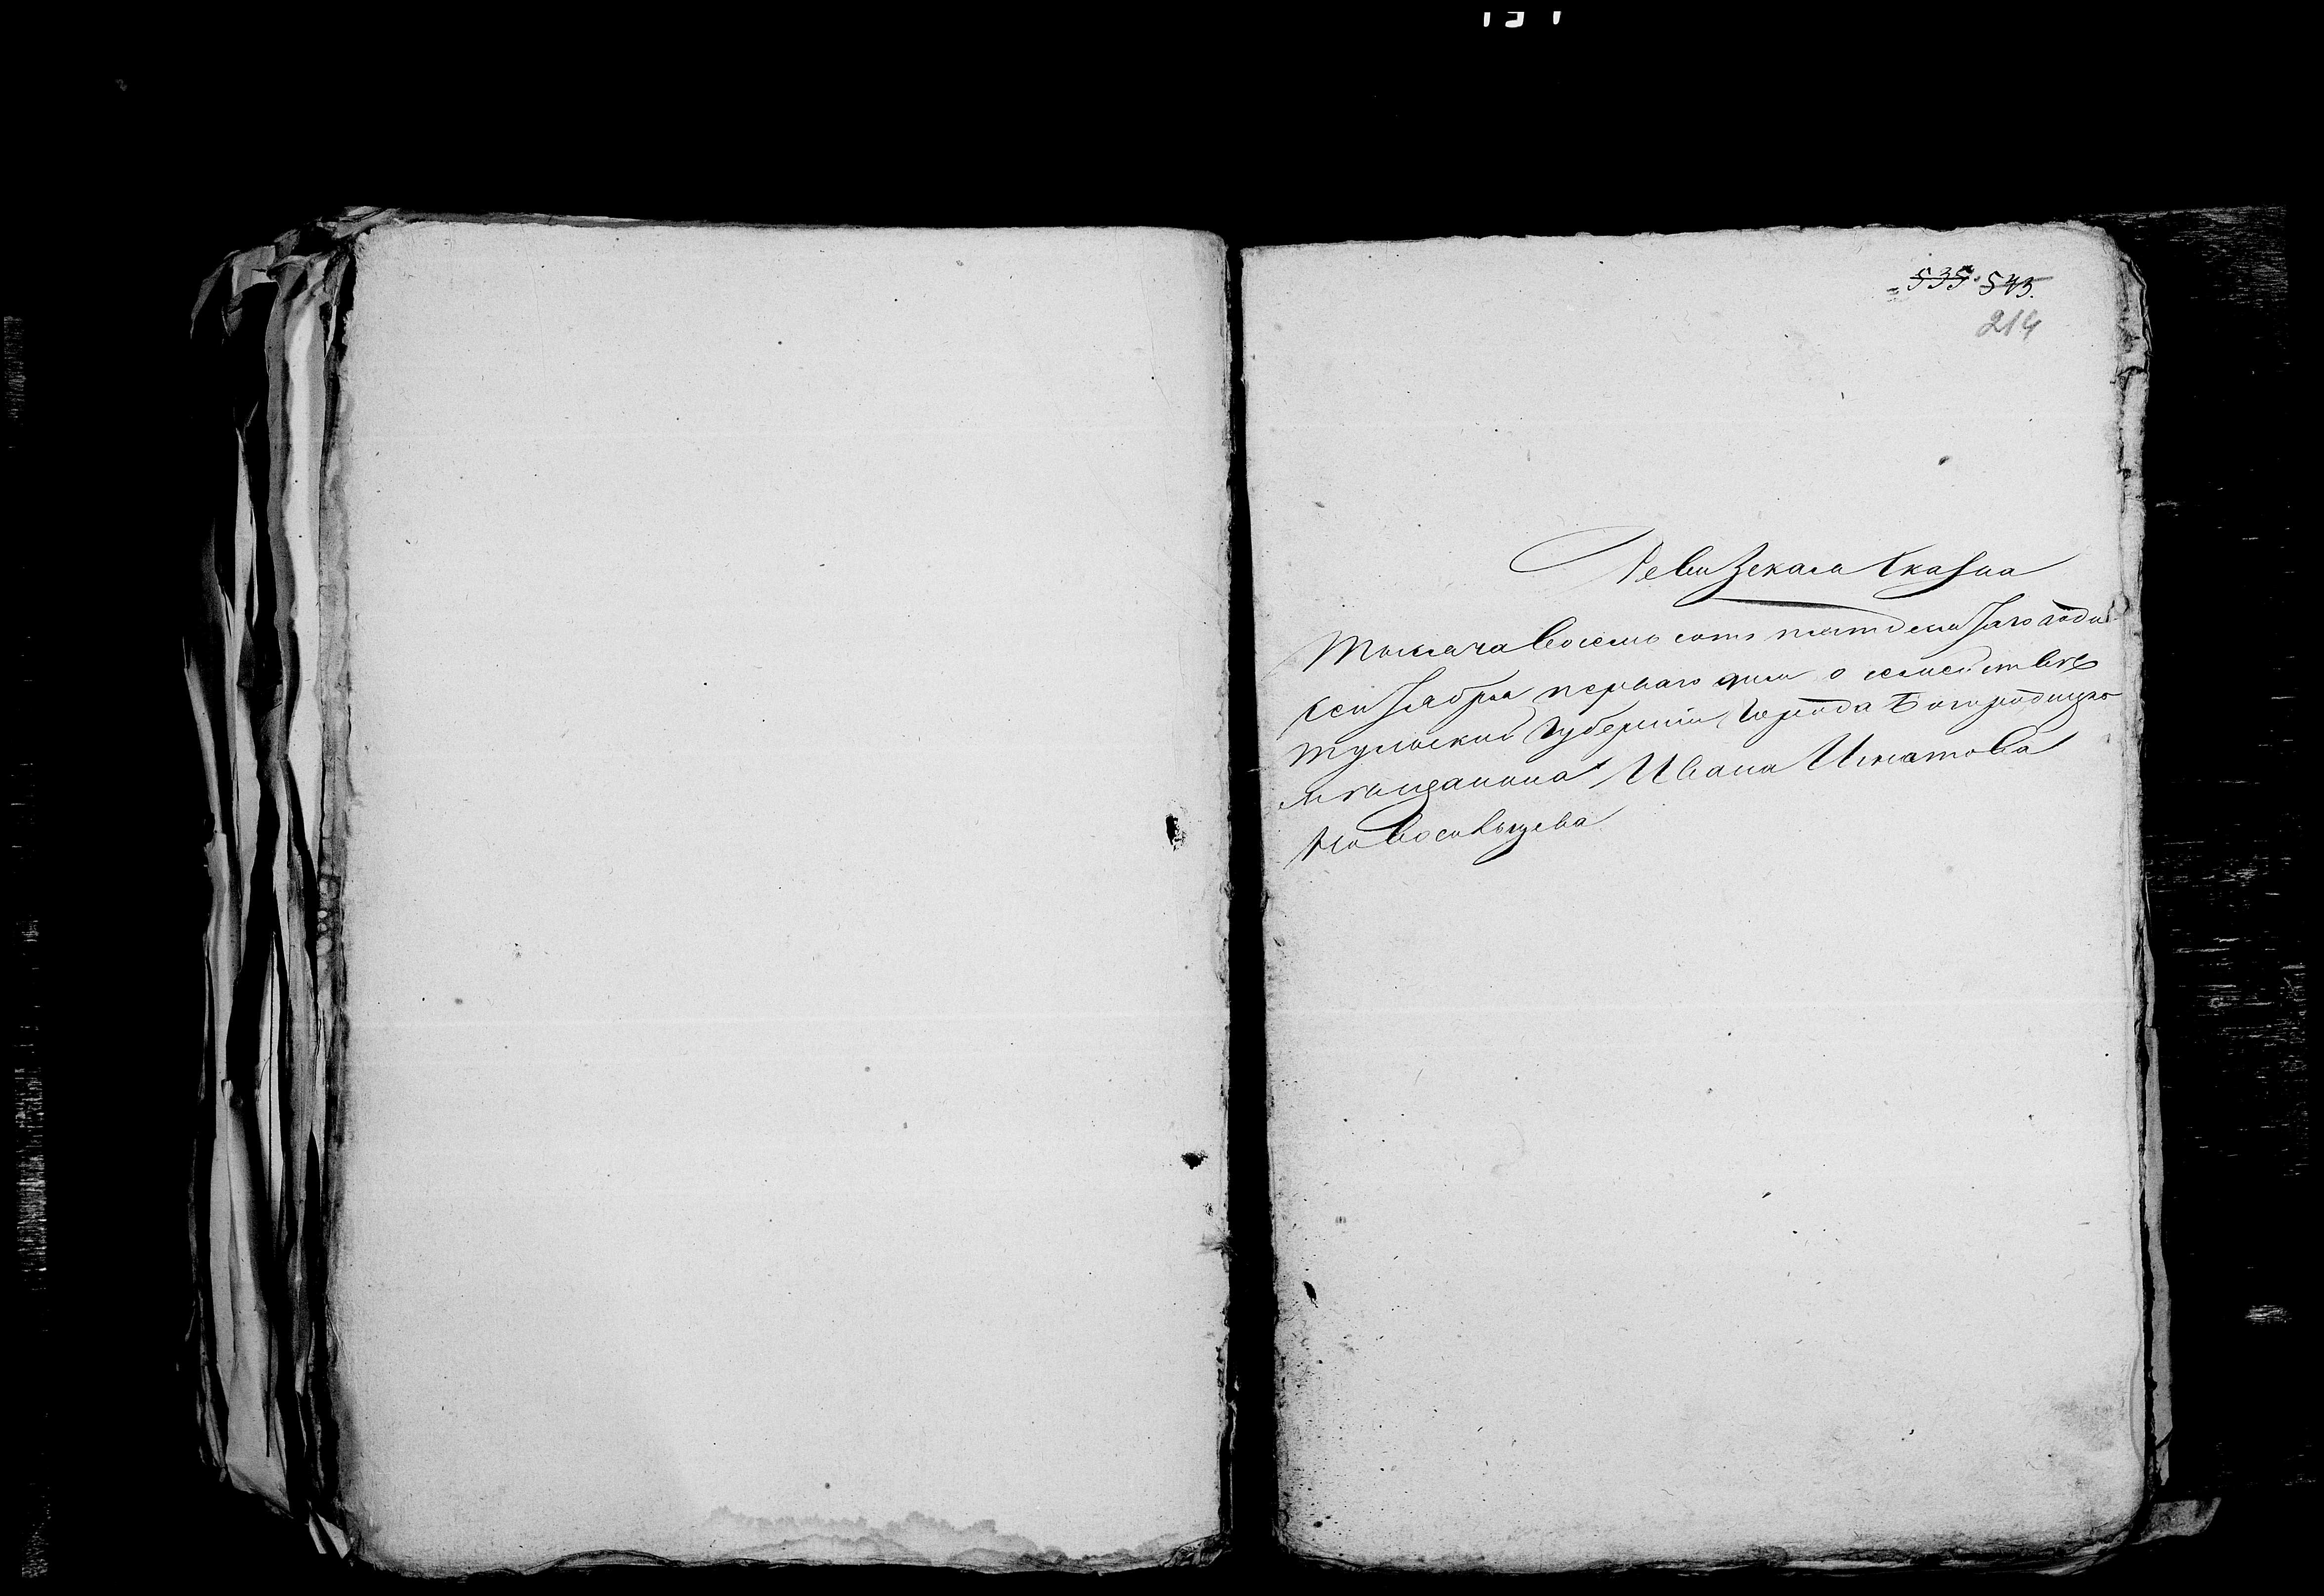 535 543.
214
Ревизская Сказка
Тысяча восемь сотъ пятдесятаго года
сентября перваго дня о семействѣ
Тульской Губерніи города Богородицка
мѣщанина Ивана Игнатова
Новосильцева